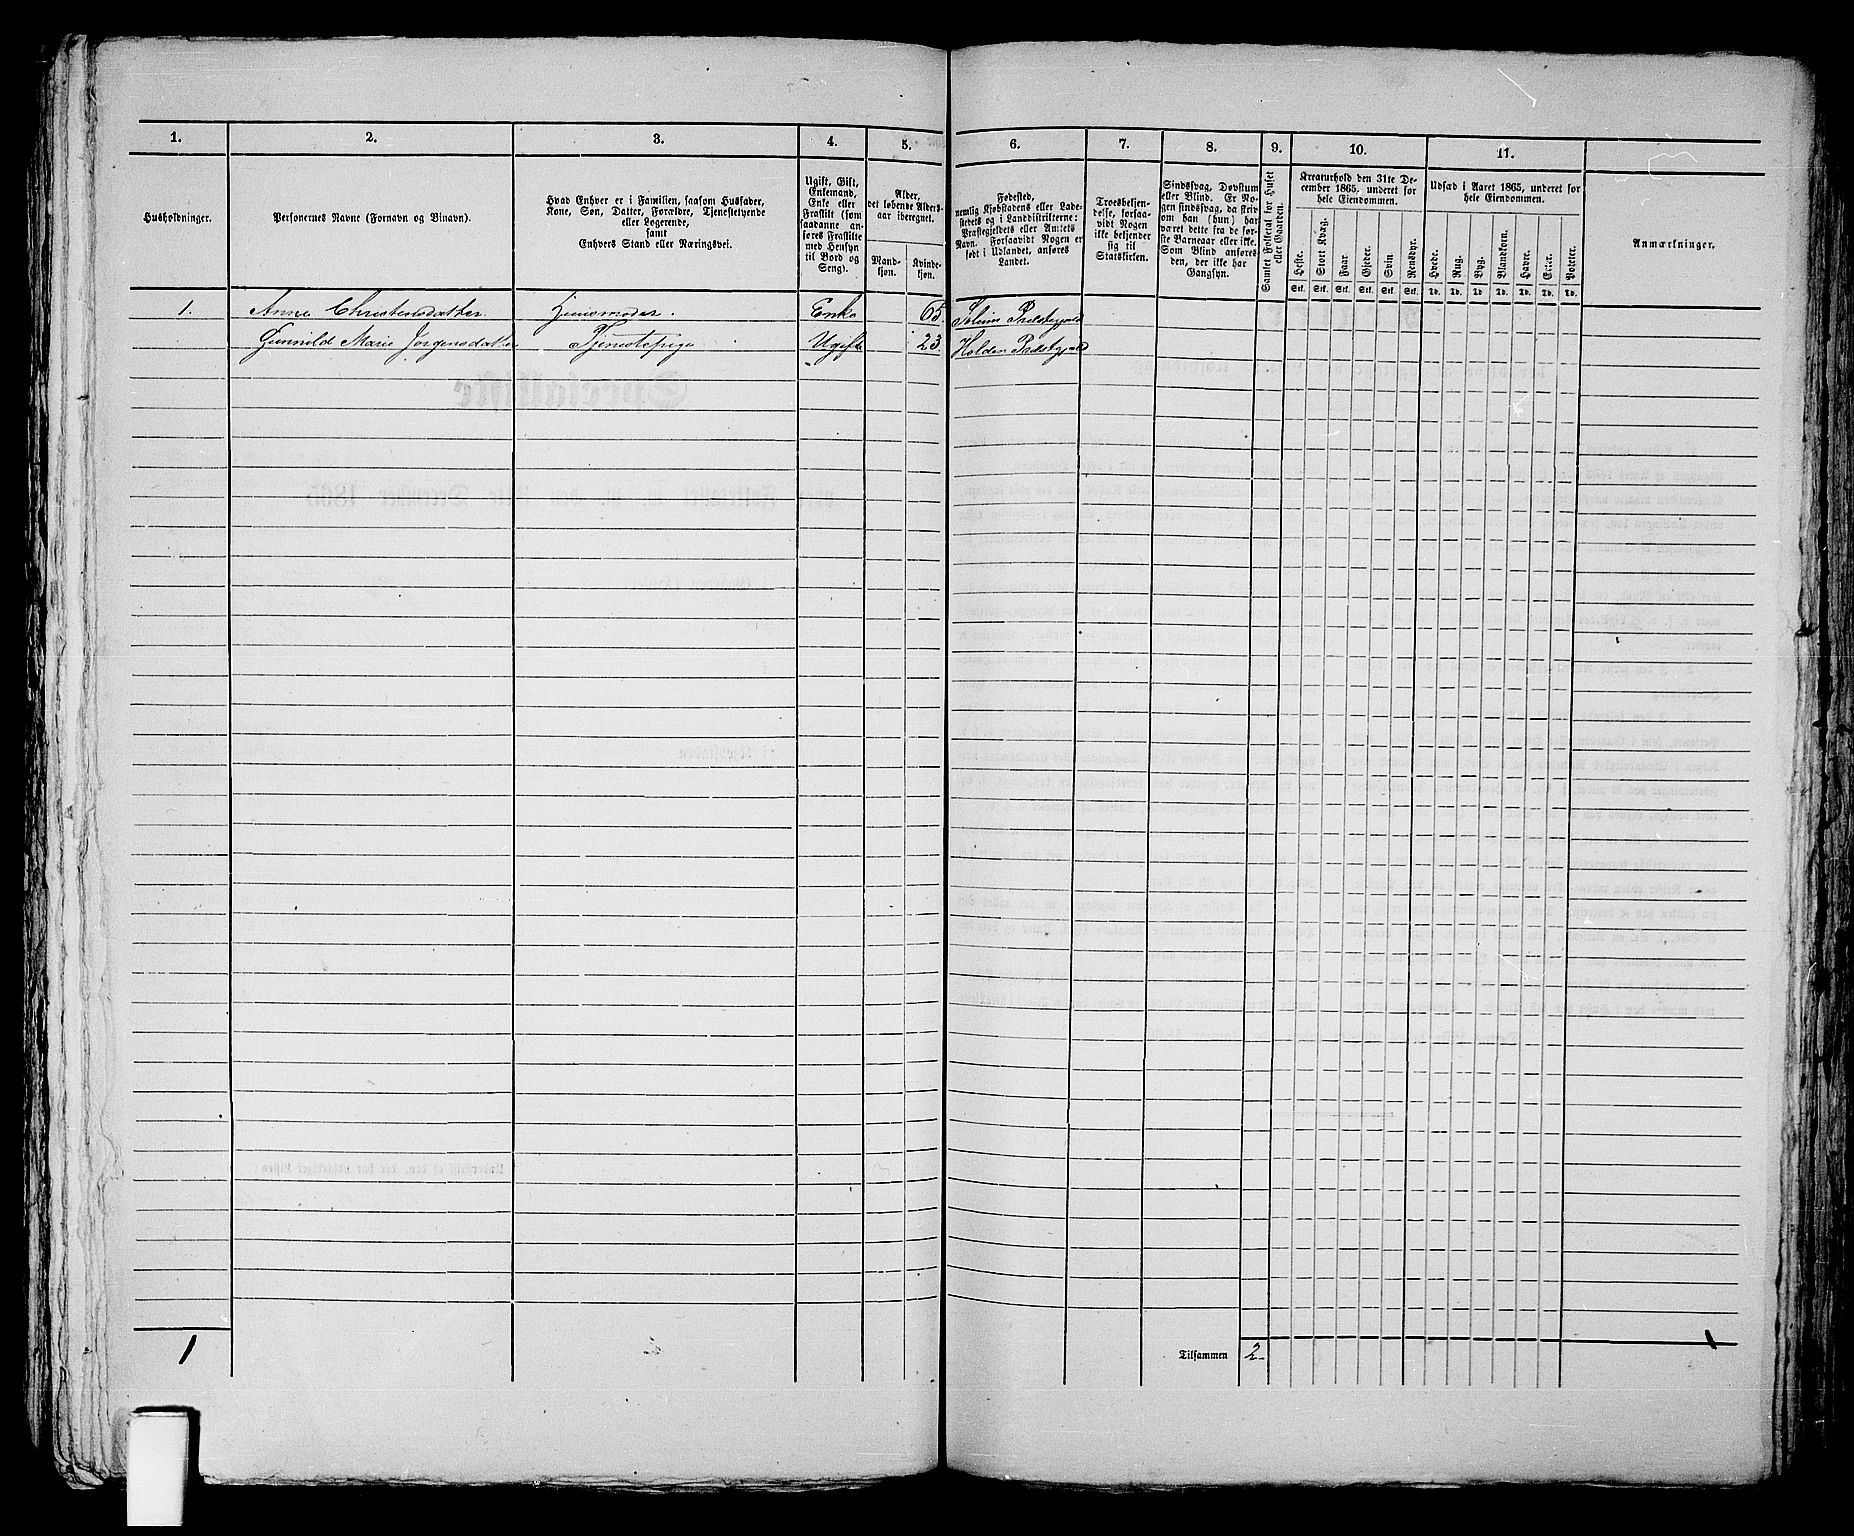 1. 2. 3. 4. 5. 6. 7. 8. 9. 10. 11.
Husholdninger.
Personernes Navne (Fornavn og Binavn).
Hvad Enhver er i Familien, saasom Husfader,
Kone, Søn, Datter, Forældre, Tjenestetyende
eller Logerende,
samt
Enhvers Stand eller Næringsvei.
Ugift, Gift,
Enkemand,
Enke eller
Fraskilt (som
saadanne an-
føres Fraskilte
med Hensyn
til Bord og
Seng).
Alder,
det løbende Alders-
aar iberegnet.
Mand-
kjøn.
Kvinde-
kjøn.
Fødested,
nemlig Kjøbstadens eller Lade-
stedets og i Landdistrikterne:
Præstegjeldets eller Amtets
Navn. Forsaavidt Nogen er
født i Udlandet, anføres
Landet.
Troesbekjen-
delse, forsaa-
vidt Nogen
ikke bekjender
sig til
Statskirken.
Sindssvag, Døvstum
eller Blind. Er No-
gen sindssvag, da skriv
om han (hun) har
været dette fra de før-
ste Barneaar eller ikke.
Som Blind anføres
den, der ikke har
Gangsyn.
Samlet Folketal for Huset
eller Gaarden.
Kreaturhold den 31te De-
cember 1865, underet for
hele Eiendommen.
Heste.
Stort Kvæg.
Faar.
Gjeder.
Svin.
Rensdyr.
Stk. Stk. Stk. Stk. Stk. Stk.
Udsæd i Aaret 1865, underet for
hele Eiendommen.
Hvede.
Rug.
Byg.
Blandkorn.
Havre.
Erter.
Poteter.
Td. Td. Td. Td. Td. Td. Td.
Anmærkninger.
1. Anne Christensdatter Huusmoder. Enke 65. Solum Præstegjeld
Gunnild Marie Jørgensdatter Tjenestepige Ugift 23. Holden Præstegjeld
1
2
Tilsammen 2
1